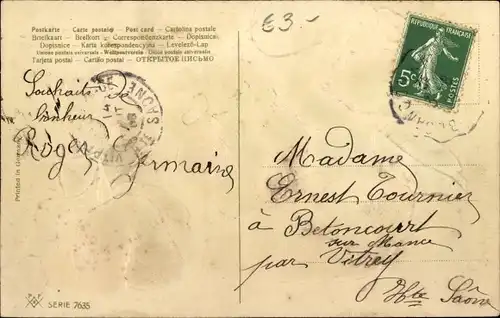 €3.-
Postkarte Carte postale Post card Cartolina postale
Briefkaart Brefkort Correspondenzkarte Dopisnice
Dopisnice Karta korespondencyjna Levelező-Lap
Union postale universelle Weltpostverein Unione postale universale
Tarjeta postal Cartão postal ОТКРЫТОЕ ПИСЬМО
RÉPUBLIQUE FRANÇAISE
5c
POSTES
Souhaits
bonheur
Roger Germaine
SAONE
Madame
Ernest Tournier
à Betoncourt
sur Mance
par Vitrey
Hte Saône
Printed in Germany
SERIE 7635